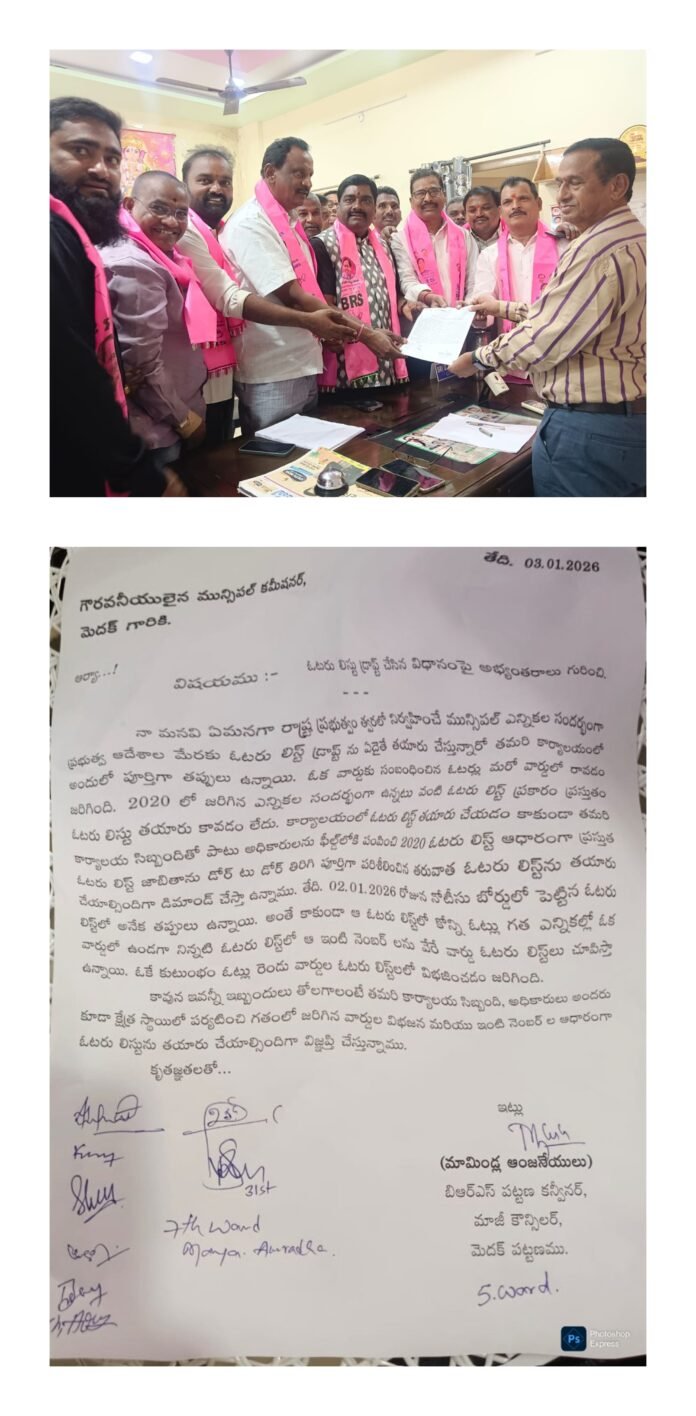 BRS
తేది. 03.01.2026
గౌరవనీయులైన మున్సిపల్ కమీషనర్,
మెదక్ గారికి.
ఆర్యా...!
విషయము :- ఓటరు లిస్టు డ్రాఫ్ట్ చేసిన విధానంపై అభ్యంతరాలు గురించి.
- - -
నా మనవి ఏమనగా రాష్ట్ర ప్రభుత్వం త్వరలో నిర్వహించే మున్సిపల్ ఎన్నికల సందర్భంగా
ప్రభుత్వ ఆదేశాల మేరకు ఓటరు లిస్ట్ డ్రాఫ్ట్ ను ఏదైతే తయారు చేస్తున్నారో తమరి కార్యాలయంలో
అందులో పూర్తిగా తప్పులు ఉన్నాయి. ఓక వార్డుకు సంబంధించిన ఓటర్లు మరో వార్డులో రావడం
జరిగింది. 2020 లో జరిగిన ఎన్నికల సందర్భంగా ఉన్నటు వంటి ఓటరు లిస్ట్ ప్రకారం ప్రస్తుతం
ఓటరు లిస్టు తయారు కావడం లేదు. కార్యాలయంలో ఓటరు లిస్ట్ తయారు చేయడం కాకుండా తమరి
కార్యాలయ సిబ్బందితో పాటు అధికారులను ఫీల్డ్‌లోకి పంపించి 2020 ఓటరు లిస్ట్ ఆధారంగా ప్రస్తుత
ఓటరు లిస్ట్ జాబితాను డోర్ టు డోర్ తిరిగి పూర్తిగా పరిశీలించిన తరువాత ఓటరు లిస్ట్‌ను తయారు
చేయాల్సిందిగా డిమాండ్ చేస్తా ఉన్నాము. తేది. 02.01.2026 రోజున నోటీసు బోర్డులో పెట్టిన ఓటరు
లిస్ట్‌లో అనేక తప్పులు ఉన్నాయి. అంతే కాకుండా ఆ ఓటరు లిస్ట్‌లో కొన్ని ఓట్లు గత ఎన్నికల్లో ఓక
వార్డులో ఉండగా నిన్నటి ఓటరు లిస్ట్‌లో ఆ ఇంటి నెంబర్ లను వేరే వార్డు ఓటరు లిస్ట్‌లు చూపిస్తా
ఉన్నాయి. ఓకే కుటుంభం ఓట్లు రెండు వార్డుల ఓటరు లిస్ట్‌లలో విభజించడం జరిగింది.
కావున ఇవన్నీ ఇబ్బందులు తోలగాలంటే తమరి కార్యాలయ సిబ్బంది, అధికారులు అందరు
కూడా క్షేత్ర స్థాయిలో పర్యటించి గతంలో జరిగిన వార్డుల విభజన మరియు ఇంటి నెంబర్ ల ఆధారంగా
ఓటరు లిస్టును తయారు చేయాల్సిందిగా విజ్ఞప్తి చేస్తున్నాము.
కృతజ్ఞతలతో...
ఇట్లు
(మామిండ్ల ఆంజనేయులు)
బిఆర్ఎస్ పట్టణ కన్వీనర్,
మాజీ కౌన్సిలర్,
మెదక్ పట్టణము.
5. Ward.
31st
7th Ward
Anuradha.
Ps Photoshop
Express